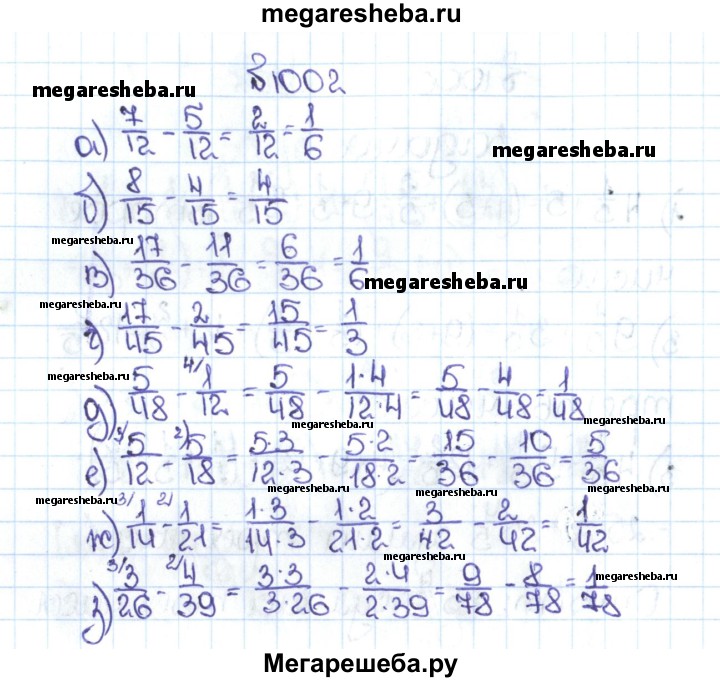 megaresheba.ru
№1002
megaresheba.ru
а) 7/12 - 5/12 = 2/12 = 1/6
megaresheba.ru
б) 8/15 - 4/15 = 4/15
megaresheba.ru
в) 17/36 - 11/36 = 6/36 = 1/6
megaresheba.ru
megaresheba.ru
г) 17/45 - 2/45 = 15/45 = 1/3
megaresheba.ru
д) 5/48 - 4/ 1/12 = 5/48 - 1·4/12·4 = 5/48 - 4/48 = 1/48
megaresheba.ru
megaresheba.ru
е) 3/ 5/12 - 2/ 5/18 = 5·3/12·3 - 5·2/18·2 = 15/36 - 10/36 = 5/36
megaresheba.ru
megaresheba.ru
ж) 3/ 1/14 - 2/ 1/21 = 1·3/14·3 - 1·2/21·2 = 3/42 - 2/42 = 1/42
megaresheba.ru
з) 3/ 3/26 - 2/ 4/39 = 3·3/3·26 - 2·4/2·39 = 9/78 - 8/78 = 1/78
megaresheba.ru
Мегарешеба.ру